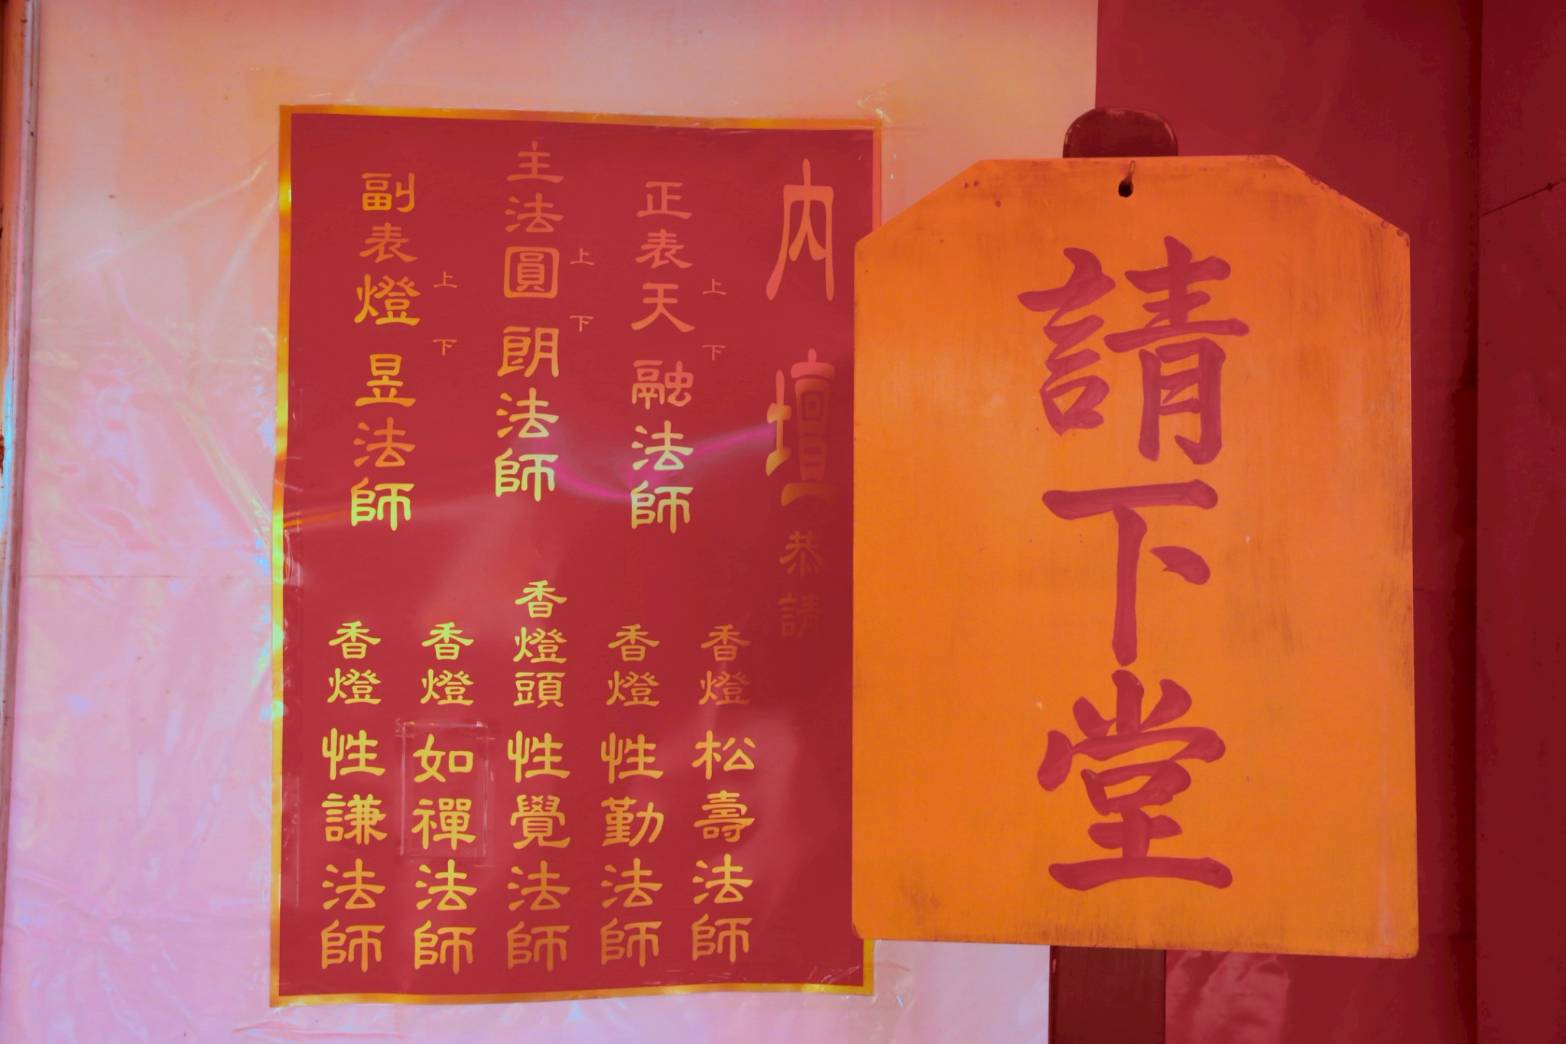 請下堂
內壇恭請
正表天融法師
上下
主法圓朗法師
上下
副表燈昱法師
上下
香燈松壽法師
香燈性勤法師
香燈頭性覺法師
香燈如禪法師
香燈性謙法師